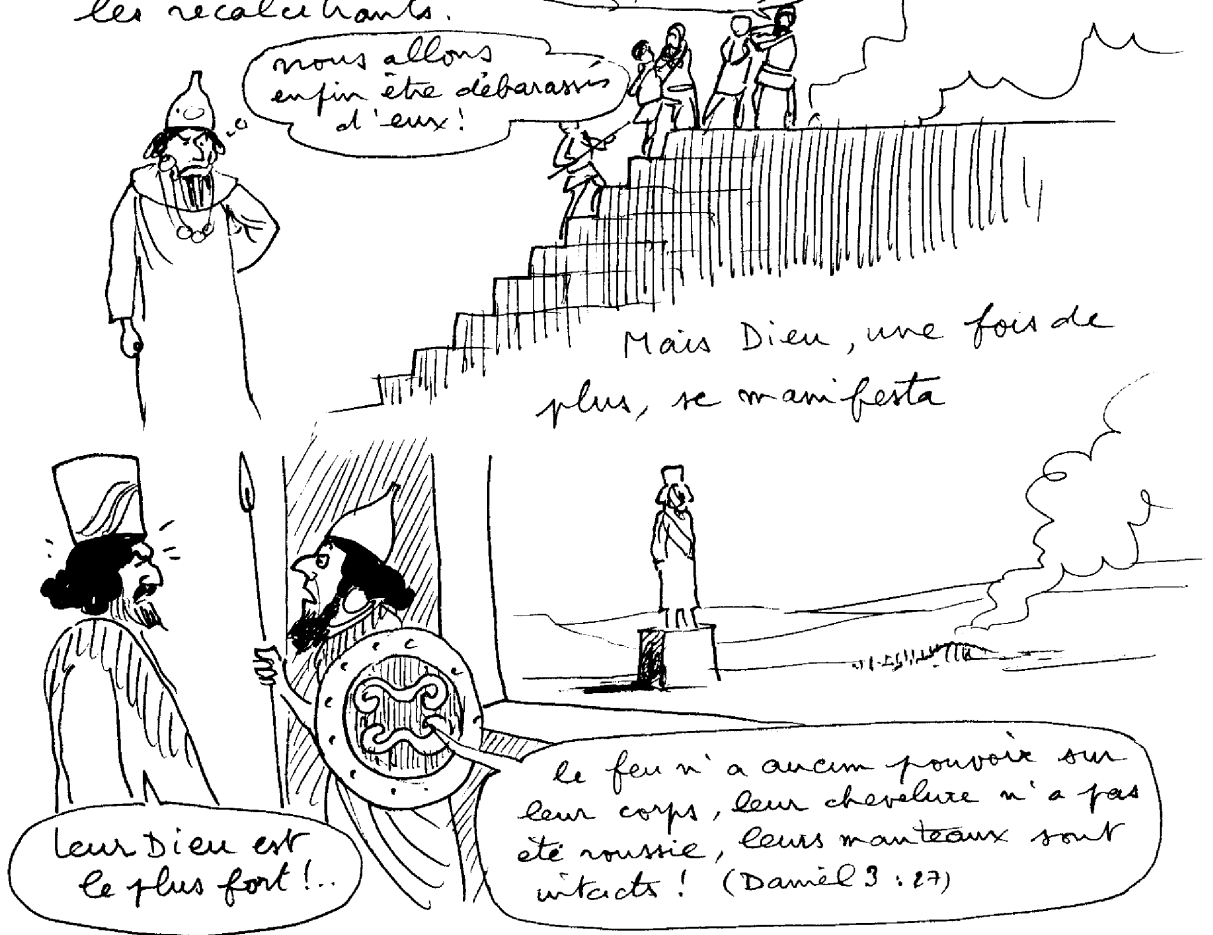 les récalcitrants.
nous allons
enfin être débarassés
d'eux!
Mais Dieu, une fois de
plus, se manifesta
leur Dieu est
le plus fort!..
le feu n'a aucun pouvoir sur
leur corps, leur chevelure n'a pas
été roussie, leurs manteaux sont
intacts! (Daniel 3:27)